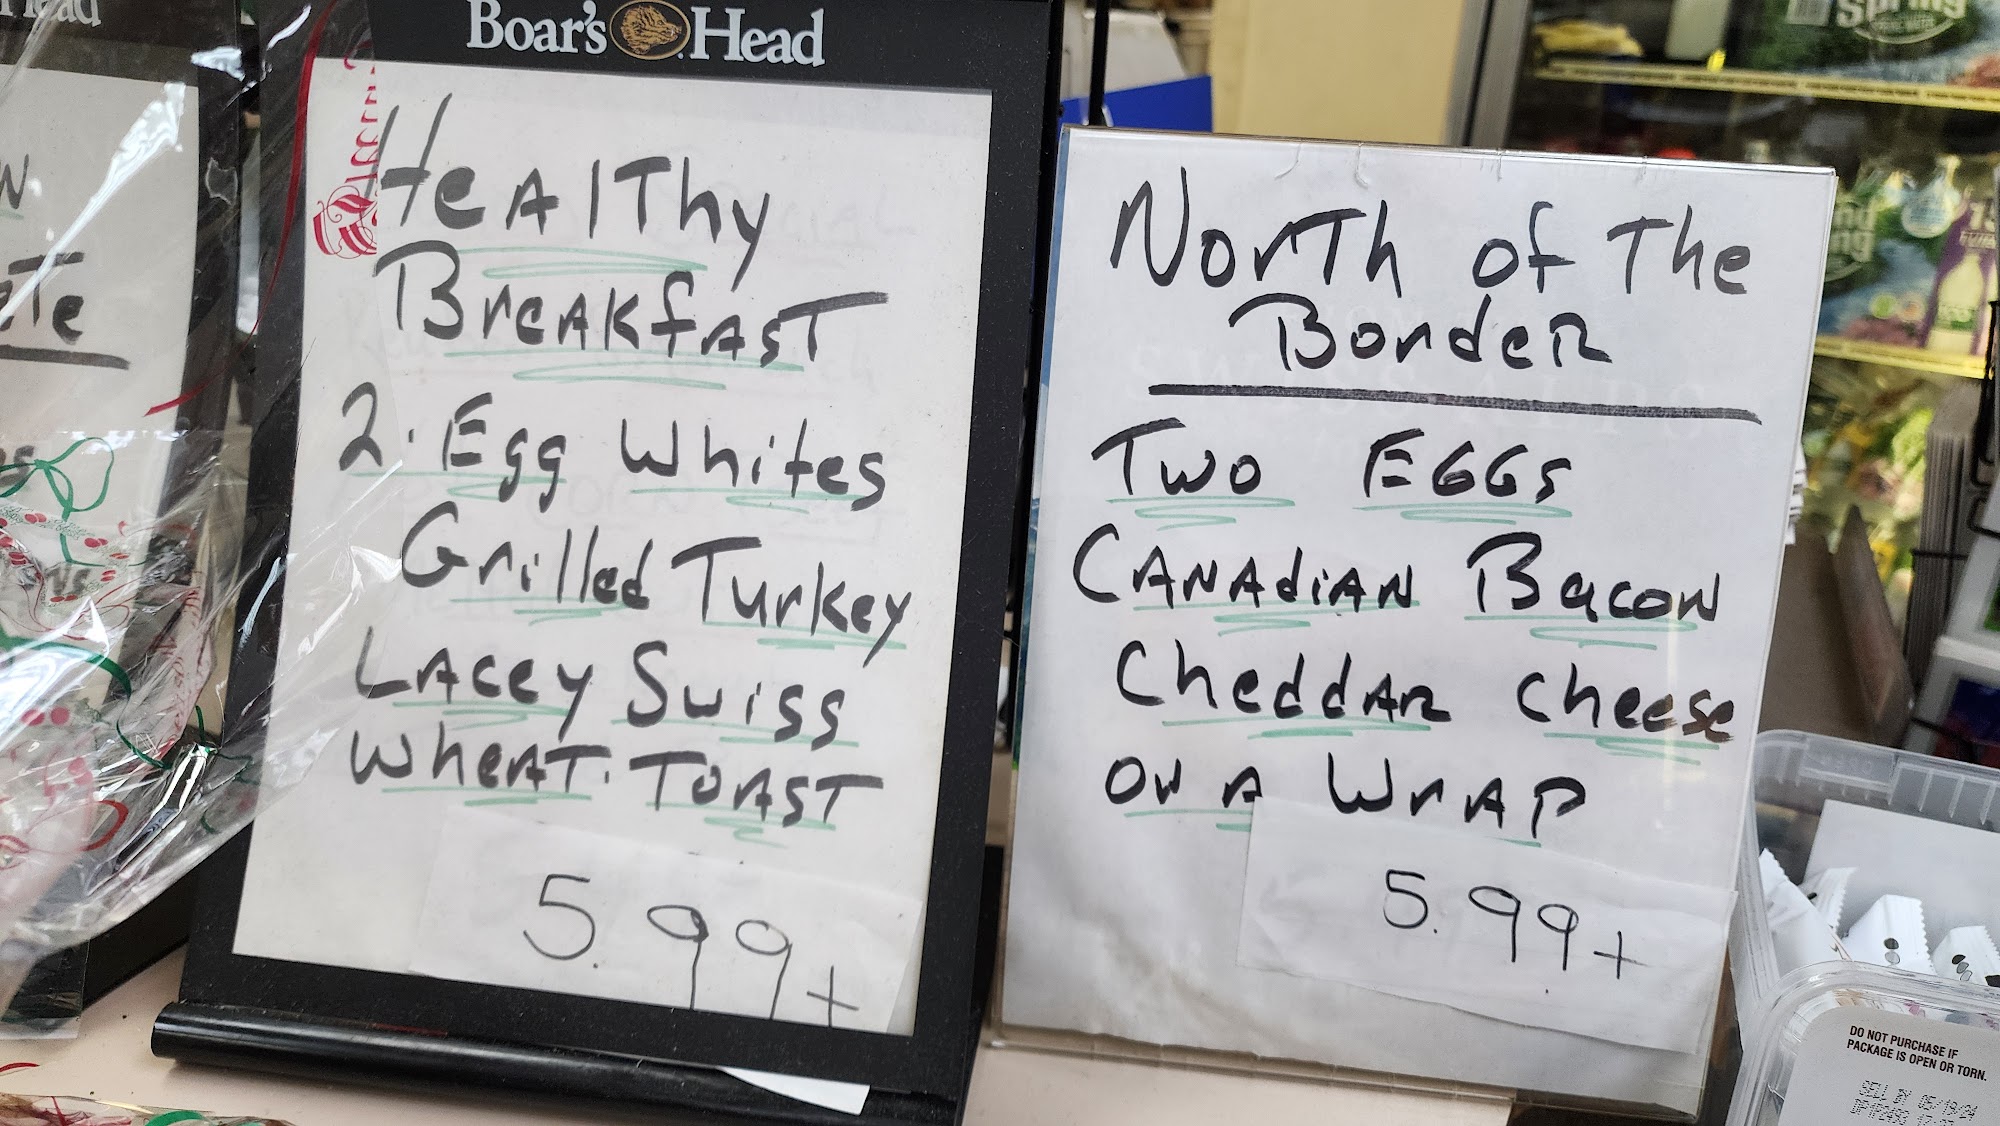 Boar's Head
Healthy
Breakfast
2. Egg Whites
Grilled Turkey
Lacey Swiss
Wheat. Toast
5.99+
North of The
Border
Two Eggs
Canadian Bacon
Cheddar Cheese
on a Wrap
5.99+
DO NOT PURCHASE IF
PACKAGE IS OPEN OR TORN.
SELL BY 05/19/24